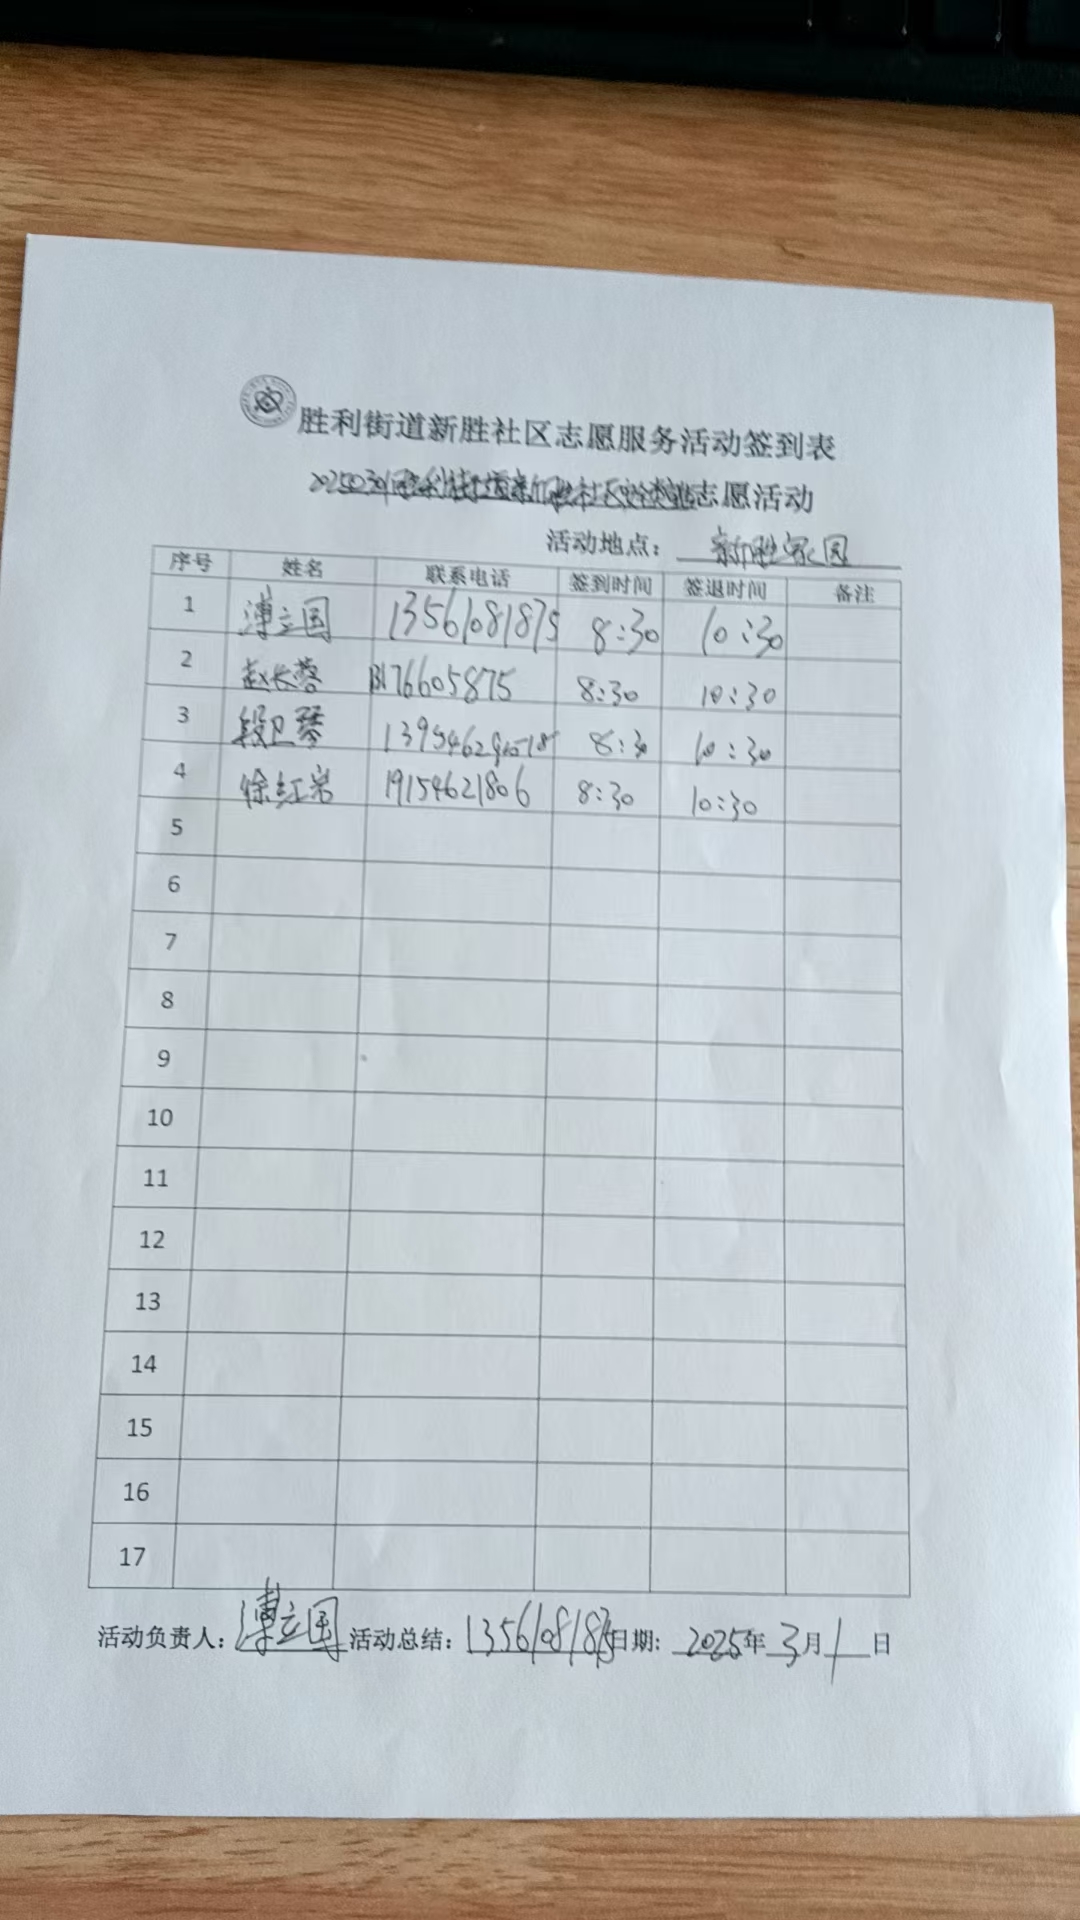 胜利街道新胜社区志愿服务活动签到表
20250301胜利街道新胜社区 志愿活动
活动地点： 新胜家园
序号 姓名 联系电话 签到时间 签退时间 备注
1 溥立国 13561081875 8:30 10:30
2 赵长蓉 13176605875 8:30 10:30
3 段卫琴 8:30 10:30
4 徐红岩 19154621806 8:30 10:30
5
6
7
8
9
10
11
12
13
14
15
16
17
活动负责人： 溥立国 活动总结： 13561081875 日期： 2025年 3月 1 日